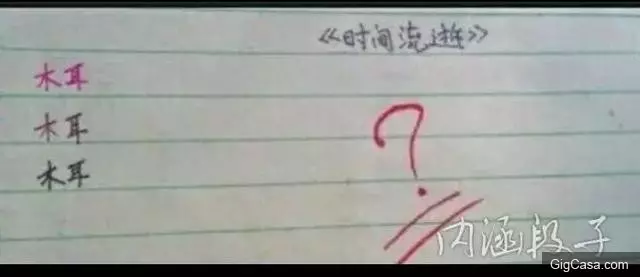 《时间流逝》
木耳
木耳
木耳
?
内涵段子
GigCasa.com